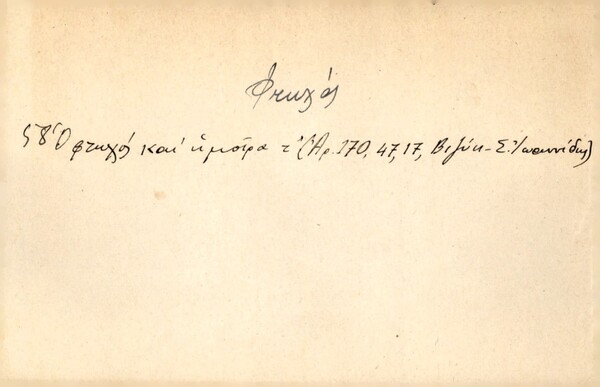 Φτωχός
58 Ὁ φτωχός καί ἡ μοῖρα τ' (Ἀρ. 170, 47, 17, Βιζύη - Σ. Ἰωαννίδης)